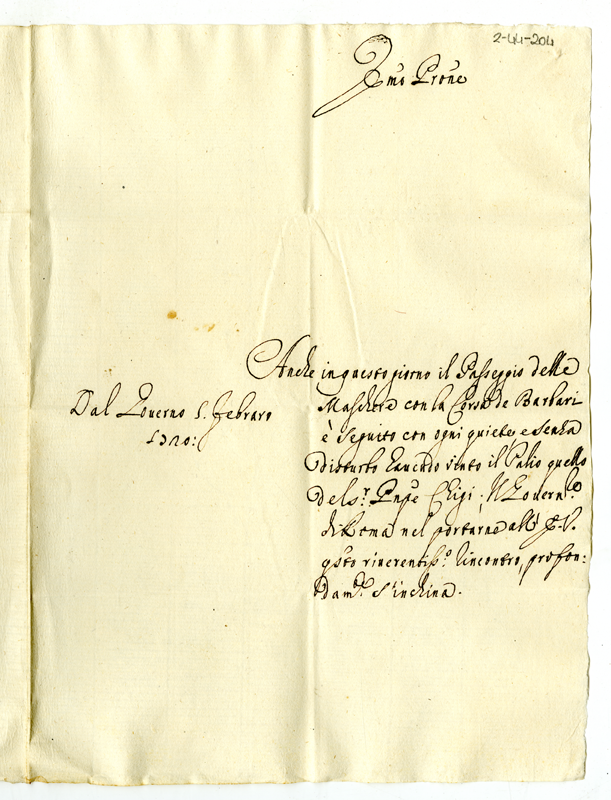 2-44-204
Em̃o Prõne
Anche in questo giorno il Passeggio delle
Maschere con la Corsa de Barbari
è seguito con ogni quiete, e senza
disturbo havendo vinto il Palio quello
del Sr. Pnpe Chigi; Il Govern.re
di Roma nel portarne all' E. V.
gsto riverentiss.o rincontro, profon:
dam.te s'inchina.
Dal Governo 5. Febraro